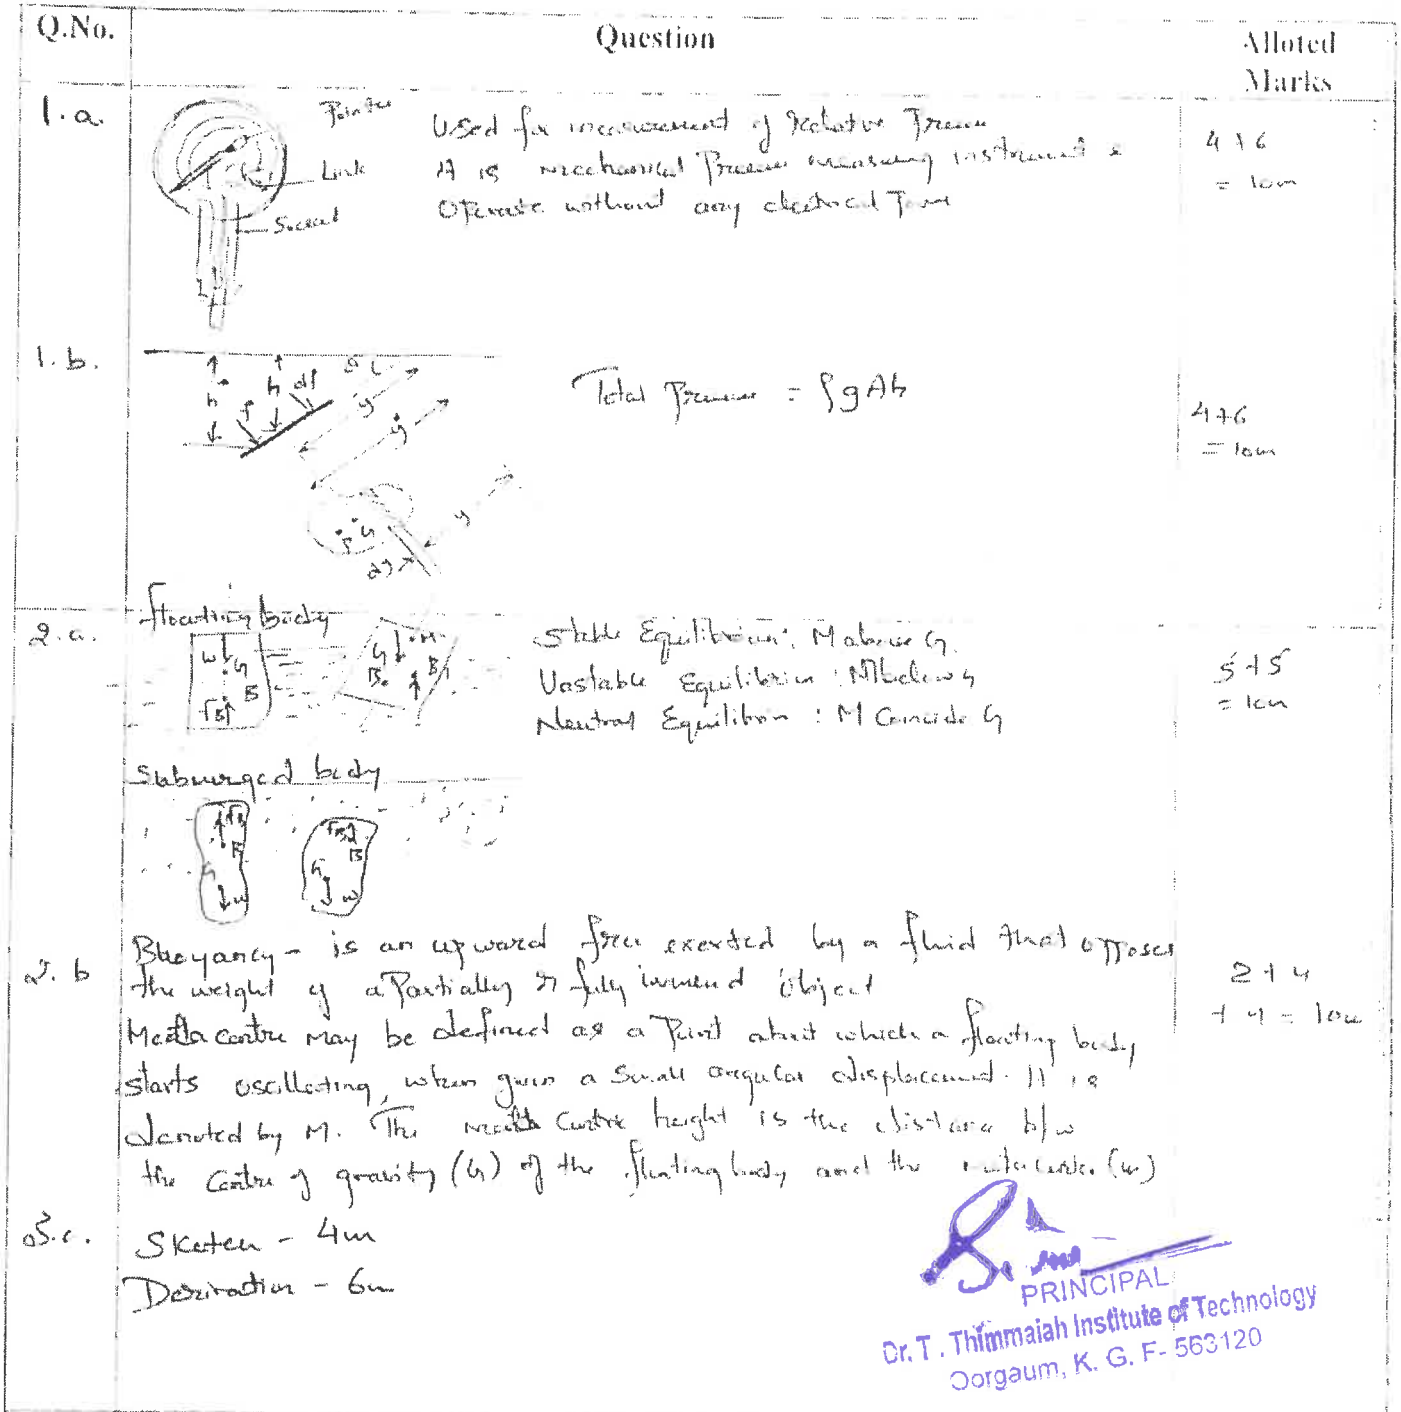 Q.No.
Question
Alloted
Marks
1.a.
Pointer
Link
Socket
Used for measurement of Relative Pressure
It is mechanical Pressure measuring instrument &
Operate without any electrical Power
4+6
= 10m
1.b.
Total Pressure = ρgAh
4+6
= 10m
2.a.
floating body
W
G
B
FB
G
M
B
B1
Stable Equilibrium: M above G.
Unstable Equilibrium: M below G
Neutral Equilibrium: M Coincide G
5+5
= 10m
Submerged body
FB
B
G
W
FB
B
G
W
2.b
Buoyancy - is an upward force exerted by a fluid that opposes
the weight of a Partially or fully immersed object
Meta centre may be defined as a Point about which a floating body
starts oscillating, when given a small angular displacement. It is
denoted by M. The meta centre height is the distance b/w
the centre of gravity (G) of the floating body and the meta centre (m)
2+4
+4 = 10m
3.c.
Sketch - 4m
Derivation - 6m
PRINCIPAL
Dr. T. Thimmaiah Institute of Technology
Oorgaum, K. G. F- 563120